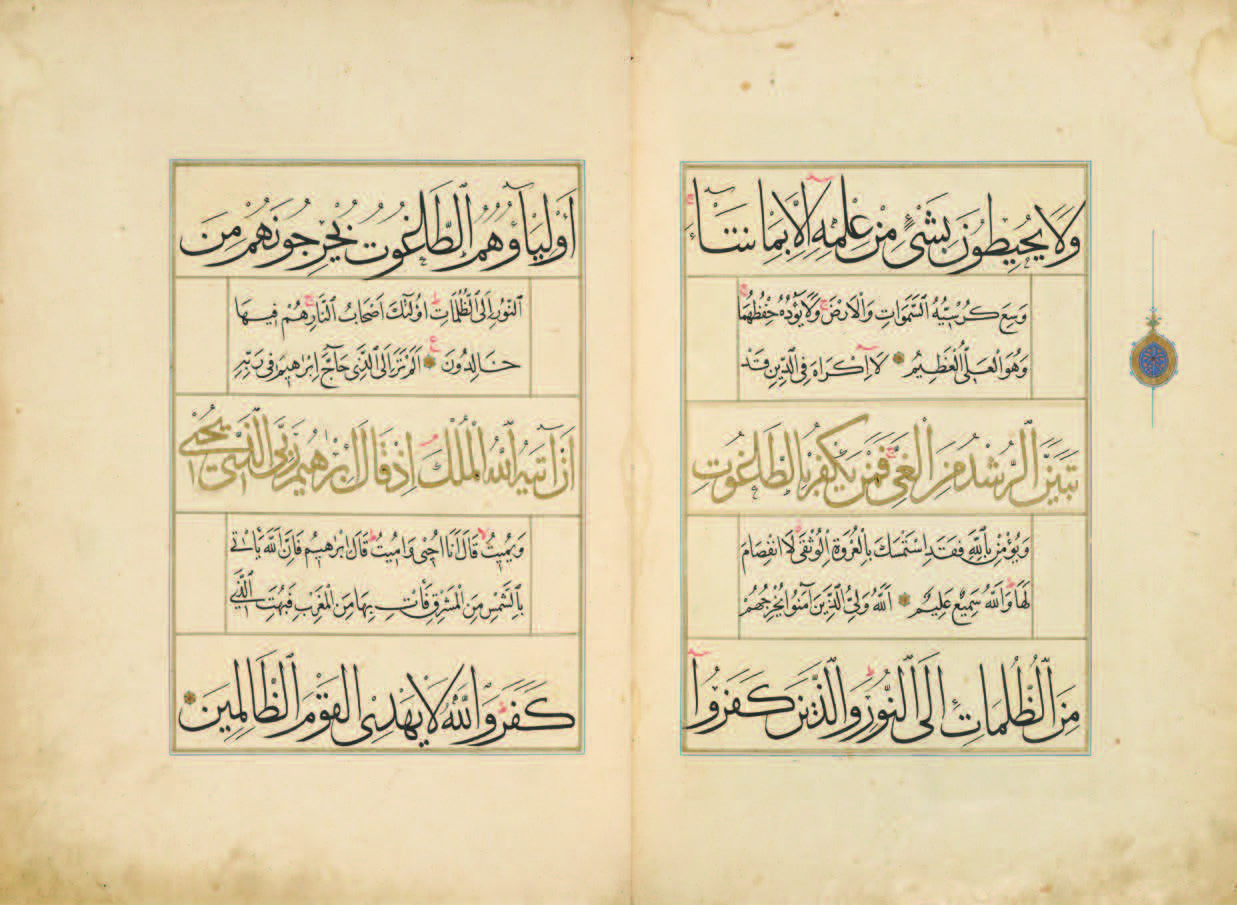 وَلَا يُحِيطُونَ بِشَيْءٍ مِنْ عِلْمِهِ إِلَّا بِمَا شَاءَ
وَسِعَ كُرْسِيُّهُ السَّمَوَاتِ وَالْاَرْضَ وَلَا يَؤُدُهُ حِفْظُهُمَا
وَهُوَ الْعَلِيُّ الْعَظِيمُ لَا اِكْرَاهَ فِي الدِّينِ قَدْ
تَبَيَّنَ الرُّشْدُ مِنَ الْغَيِّ فَمَنْ يَكْفُرْ بِالطَّاغُوتِ
وَيُؤْمِنْ بِاللّٰهِ فَقَدِ اسْتَمْسَكَ بِالْعُرْوَةِ الْوُثْقَى لَا انْفِصَامَ
لَهَا وَاللّٰهُ سَمِيعٌ عَلِيمٌ اَللّٰهُ وَلِيُّ الَّذِينَ آمَنُوا يُخْرِجُهُمْ
مِنَ الظُّلُمَاتِ اِلَى النُّورِ وَالَّذِينَ كَفَرُوا
اَوْلِيَآؤُهُمُ الطَّاغُوتُ يُخْرِجُونَهُمْ مِنَ
النُّورِ اِلَى الظُّلُمَاتِ اُولٰئِكَ اَصْحَابُ النَّارِ هُمْ فِيهَا
خَالِدُونَ اَلَمْ تَرَ اِلَى الَّذِي حَآجَّ اِبْرٰهِيمَ فِي رَبِّهِ
اَنْ اٰتٰيهُ اللّٰهُ الْمُلْكَ اِذْ قَالَ اِبْرٰهِيمُ رَبِّيَ الَّذِي يُحْيِي
وَيُمِيتُ قَالَ اَنَا اُحْيِي وَاُمِيتُ قَالَ اِبْرٰهِيمُ فَاِنَّ اللّٰهَ يَأْتِي
بِالشَّمْسِ مِنَ الْمَشْرِقِ فَأْتِ بِهَا مِنَ الْمَغْرِبِ فَبُهِتَ الَّذِي
كَفَرَ وَاللّٰهُ لَا يَهْدِي الْقَوْمَ الظَّالِمِينَ